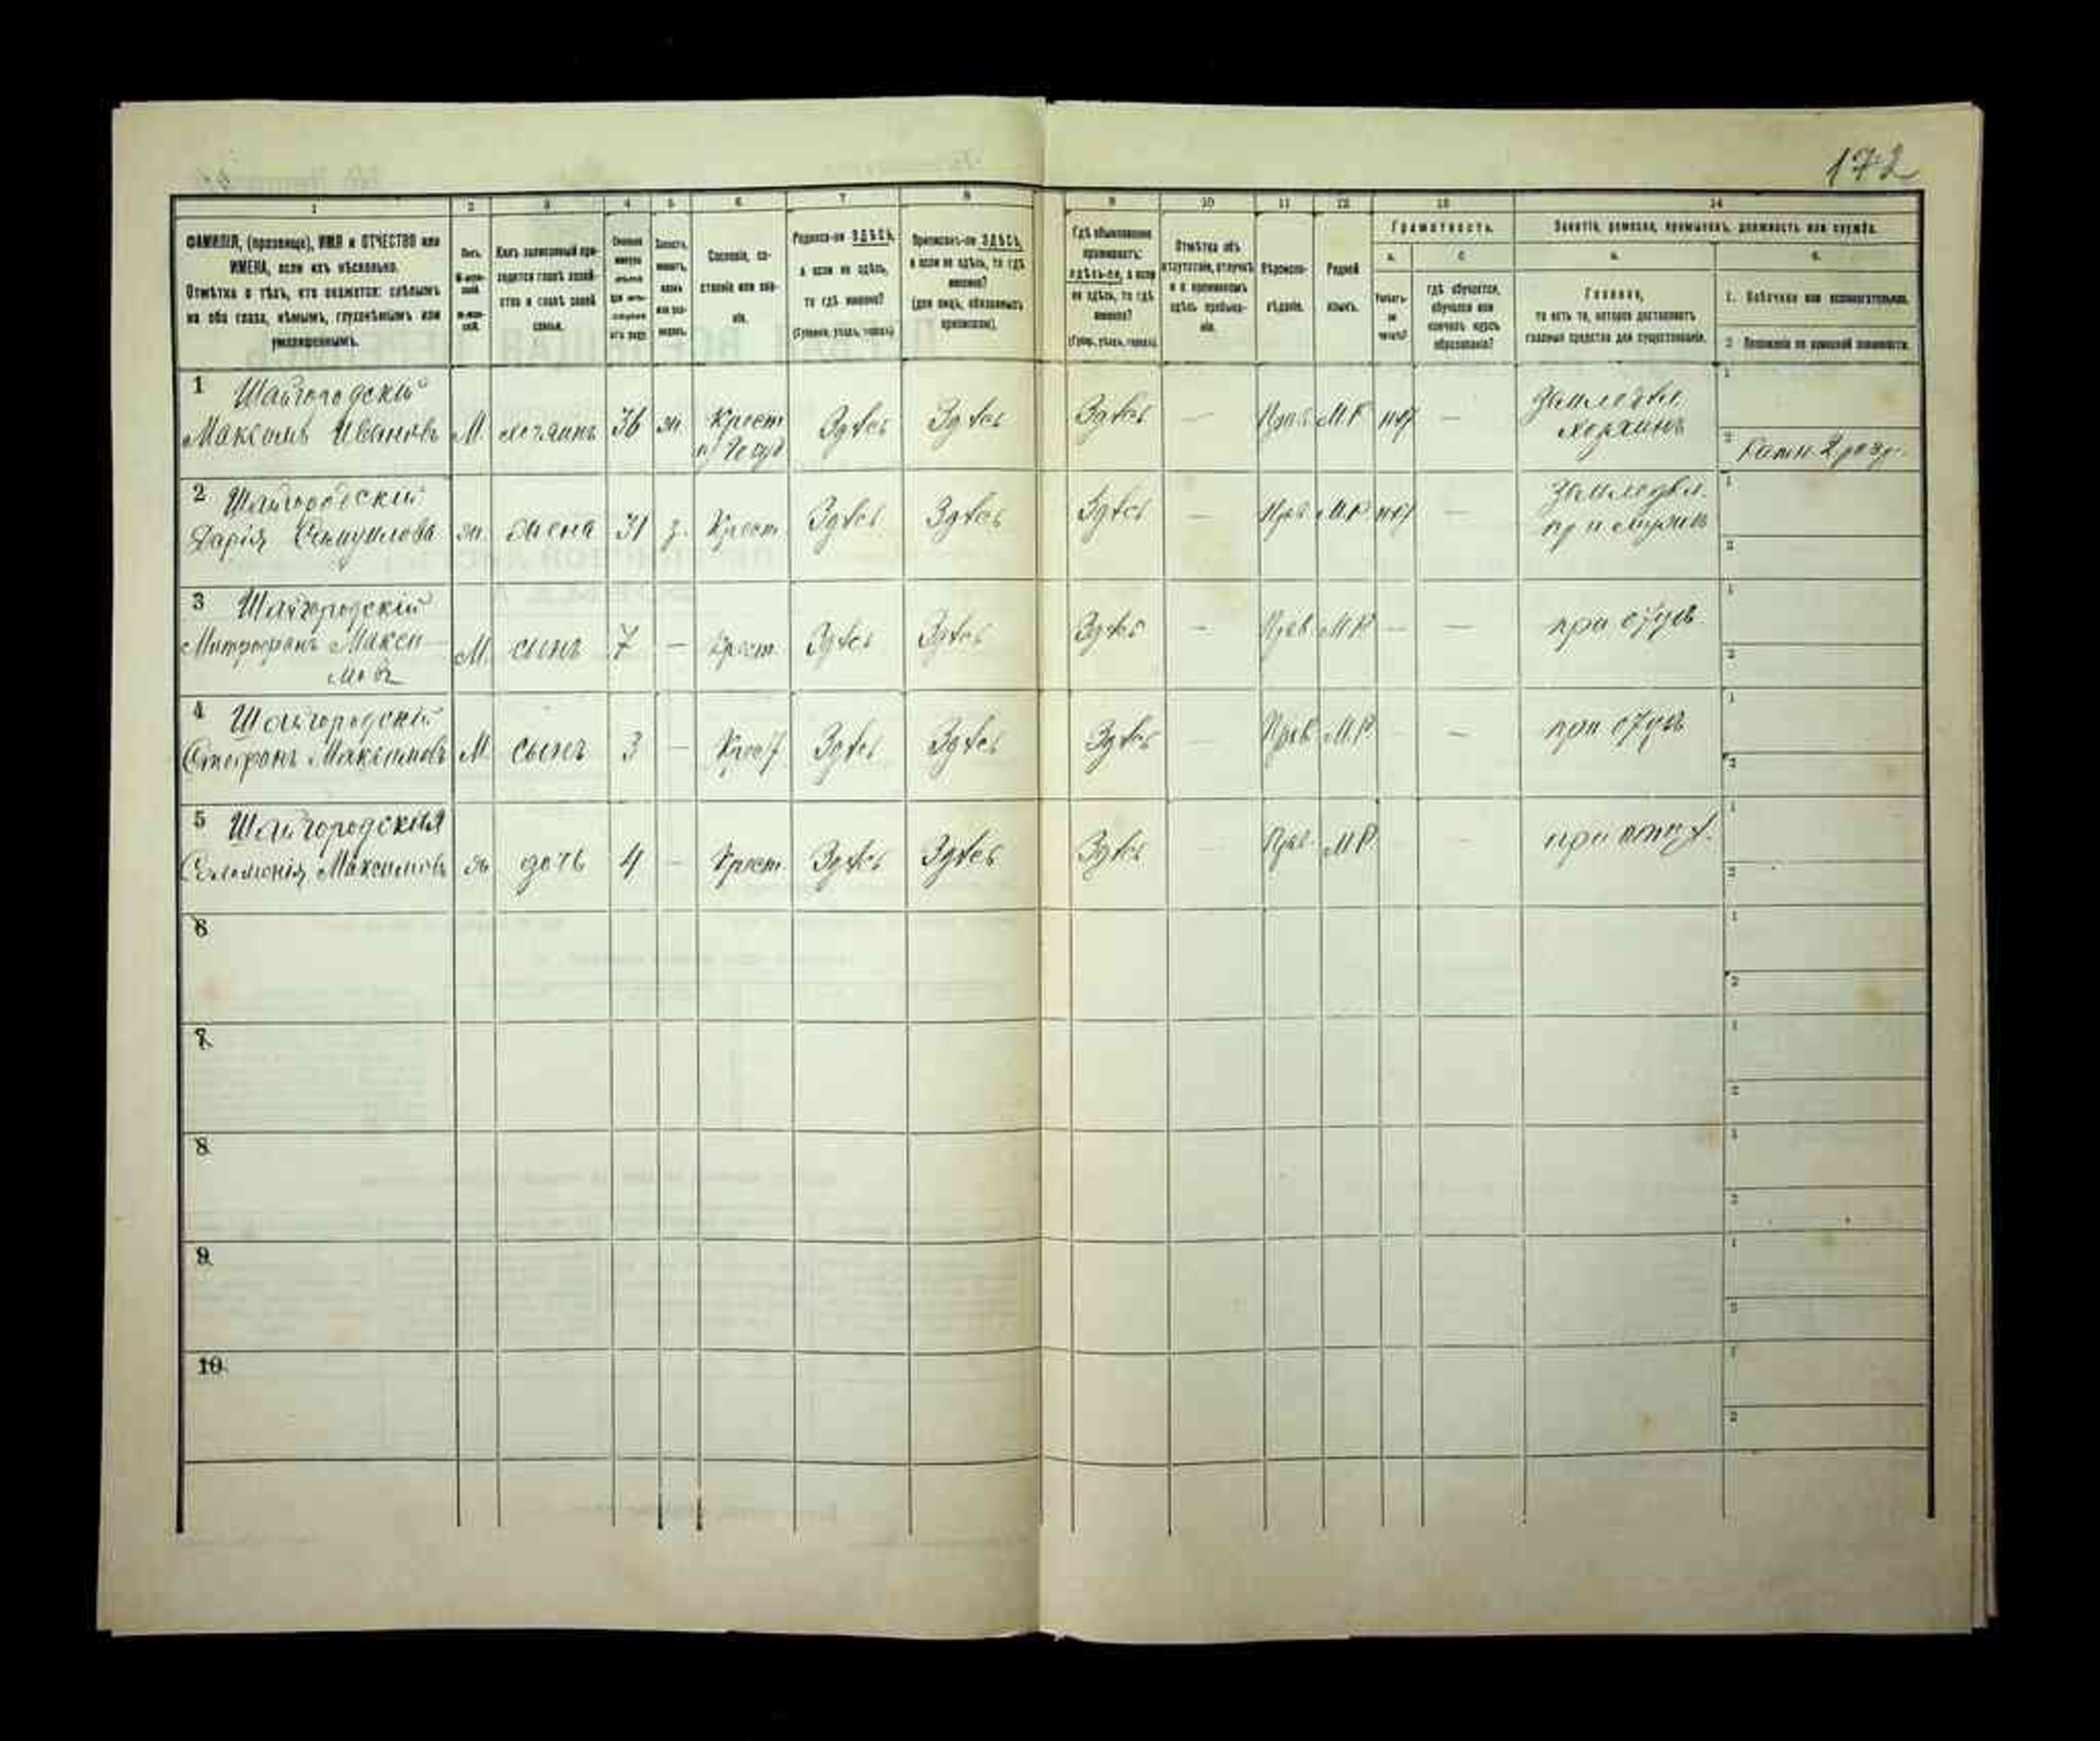 172
1 2 3 4 5 6 7 8 9 10 11 12 13 14
ФАМИЛІЯ, (прозвище), ИМЯ и ОТЧЕСТВО или
ИМЕНА, если ихъ нѣсколько.
Отмѣтка о тѣхъ, кто окажется: слѣпымъ
на оба глаза, нѣмымъ, глухонѣмымъ или
умалишеннымъ.
Полъ.
Какъ записанный при-
ходится главѣ хозяй-
ства и главѣ своей
семьи.
Сословіе, со-
стояніе или зва-
ніе.
Родился-ли ЗДѢСЬ,
а если не здѣсь,
то гдѣ именно?
(Губернія, уѣздъ, городъ)
Приписанъ-ли ЗДѢСЬ,
а если не здѣсь, то гдѣ
именно?
(для лицъ, обязанныхъ
припиской).
Гдѣ обыкновенно
проживаетъ:
здѣсь-ли, а если
не здѣсь, то гдѣ
именно?
(Губер., уѣздъ, городъ)
Отмѣтка объ
отсутствіи, отлучкѣ
и о временномъ
здѣсь пребыва-
ніи.
Вѣроиспо-
вѣданіе.
Родной
языкъ.
Грамотность.
а.
Умѣетъ-
ли
читать?
б.
гдѣ обучается,
обучался или
кончилъ курсъ
образованія?
Занятіе, ремесло, промыселъ, должность или служба.
а.
Главное,
то есть то, которое доставляетъ
главныя средства для существованія.
б.
1. Побочное или вспомогательное.
2 Положеніе по воинской повинности.
1 Шайгородскій
Максимъ Ивановъ М. хозяинъ 36 ж. Крест Здѣсь Здѣсь Здѣсь — Прав М.Р нѣт — Земледѣл. хозяинъ
Ратн. 2 разр.
2 Шайгородскій
Дарія Самуилова ж. жена 31 з. Крест. Здѣсь Здѣсь Здѣсь — Прав М.Р нѣт — Земледѣл. при мужѣ
3 Шайгородскій
Митрофанъ Макси-
мовъ М. сынъ 7 — Крест. Здѣсь Здѣсь Здѣсь — Прав М.Р — — при отцѣ
4 Шайгородскій
Стефанъ Максимовъ М сынъ 3 — Крест Здѣсь Здѣсь Здѣсь — Прав М.Р. — при отцѣ
5 Шайгородская
Соломонія Максимова ж дочь 4 — Крест. Здѣсь Здѣсь Здѣсь — Прав. М.Р. — при отцѣ
6
7
8
9
10